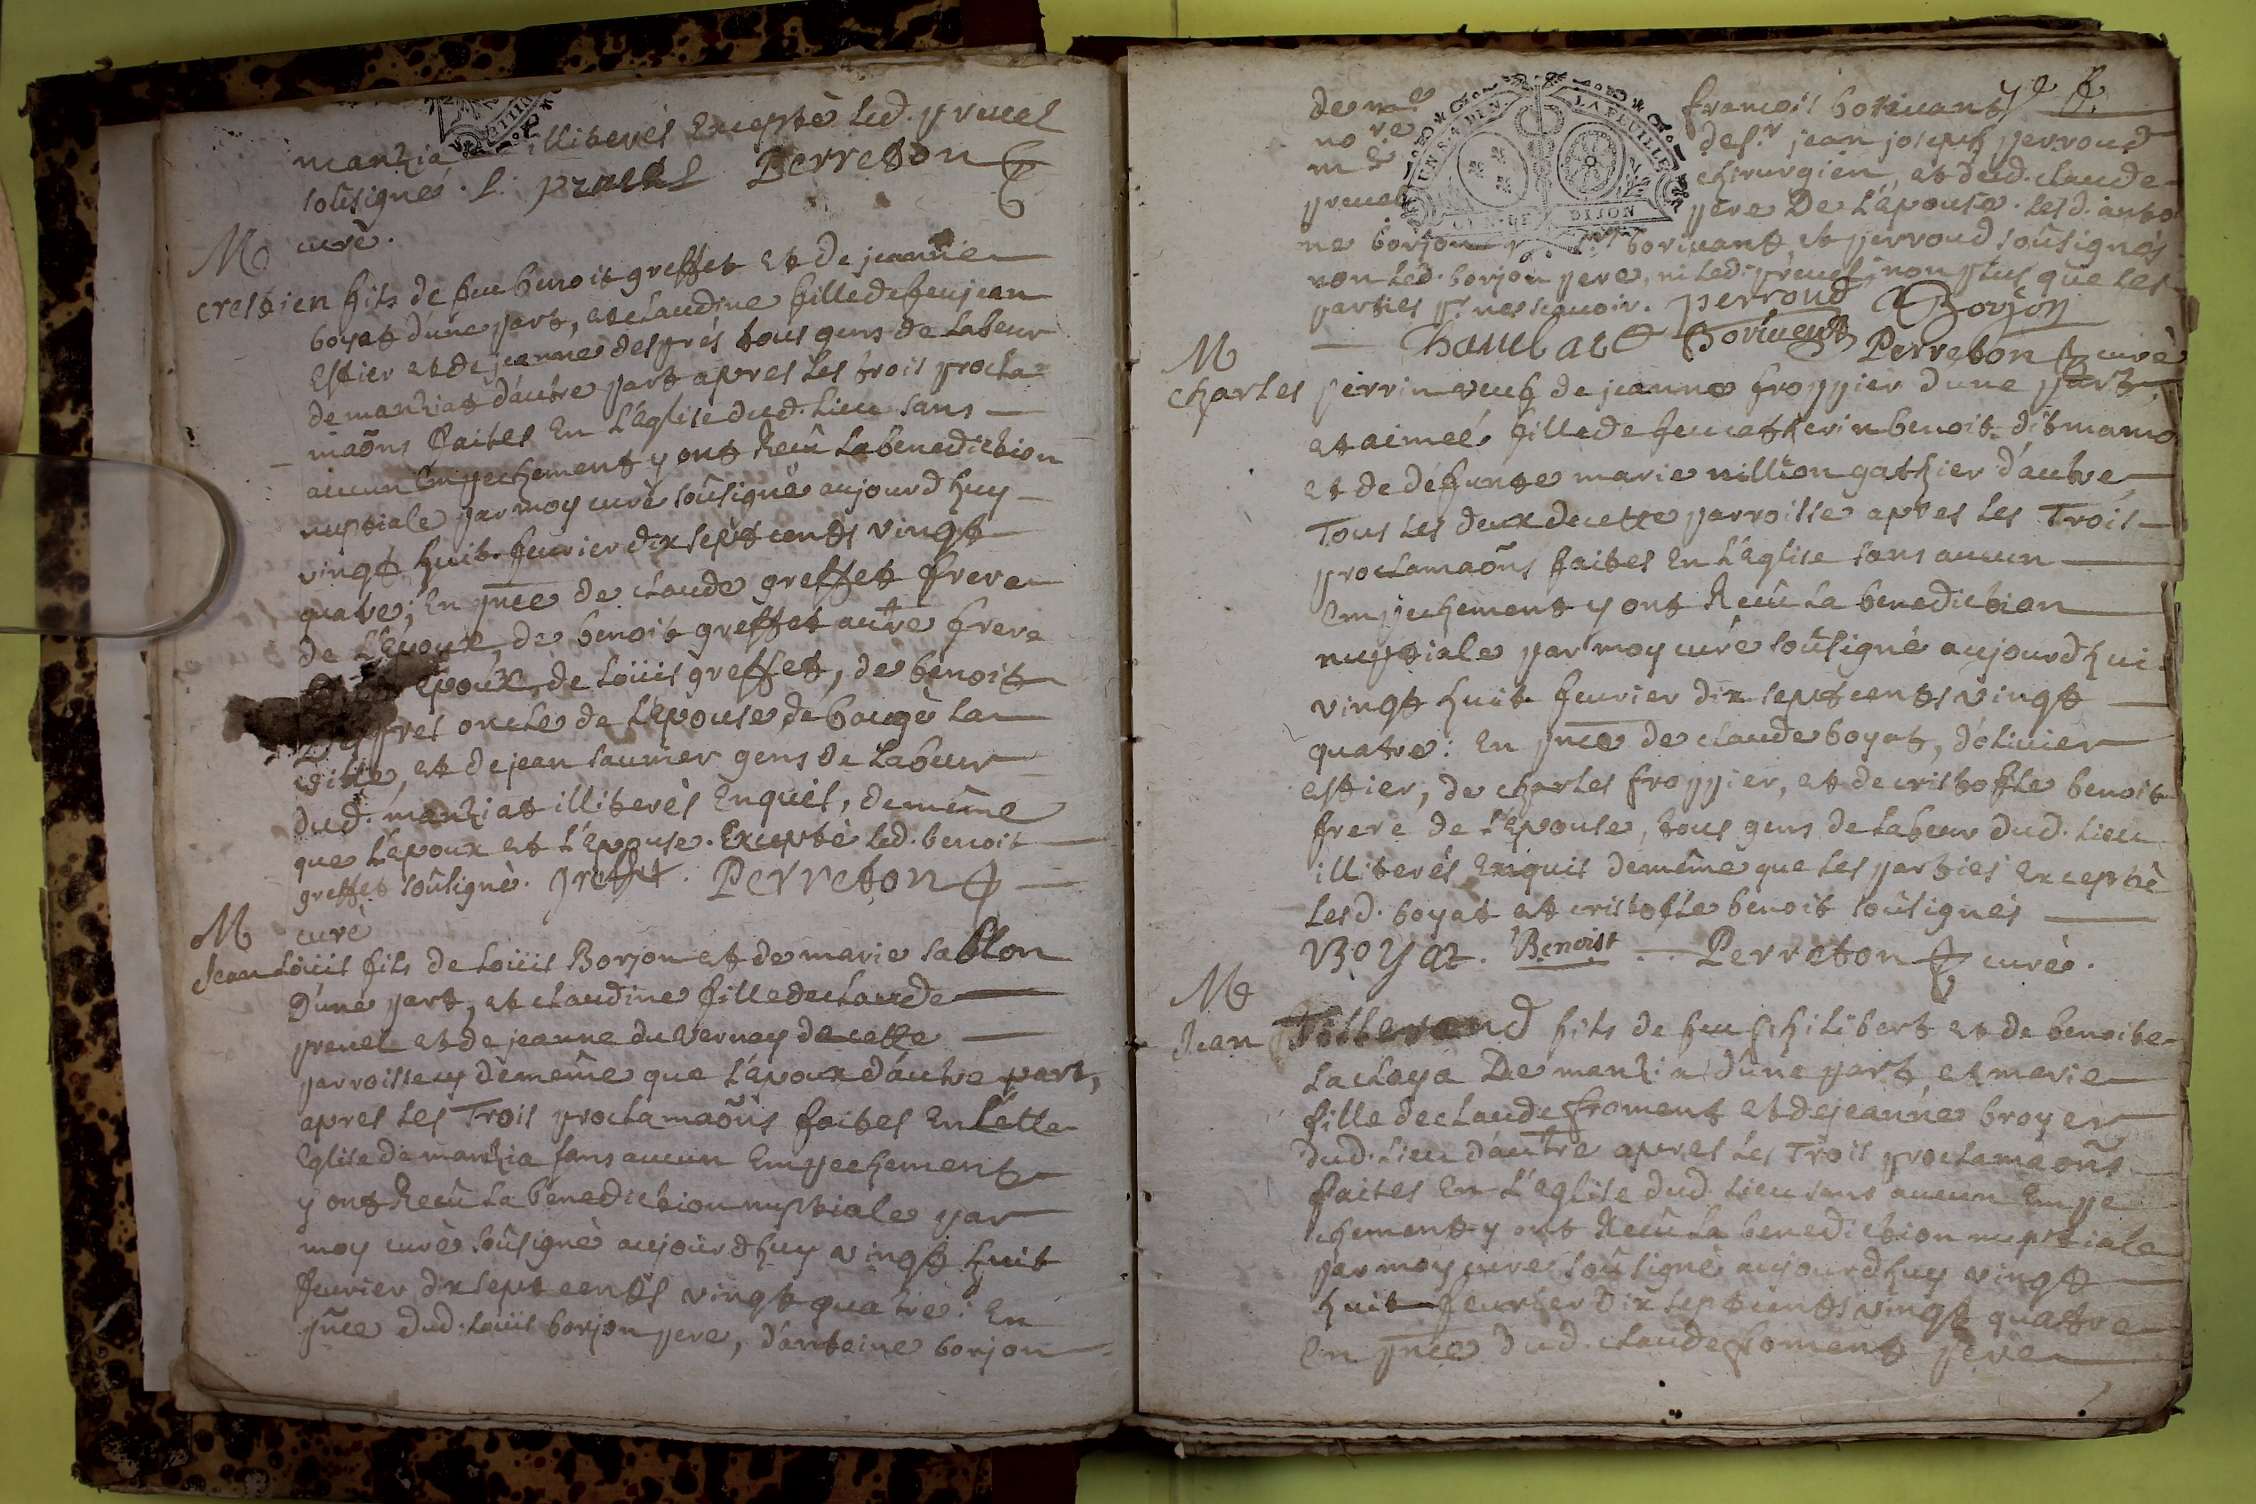 manzia illiterés Excepté led. pruel
soûsigné. l. pruel Perreton
curé.
M
crestien fils de feu benoit greffet et de jeanne
boyat d'une part, et claudine fille de feu jean
Estier et de jeanne desprès tous gens de labeur
de manziat d'autre part apres les trois procla-
maõns faites En L'Eglise dud. Lieu sans
aucun Empechement y ont Receu la benediction
nuptiale par moy curé soûsigné aujourd huy
vingt huit fevrier dix sept cents vingt
quatre; En pnce de claude greffet frere
de L'Epoux, de benoit greffet autre frere
Epoux, de loüis greffet, de benoit
oncle de L'Epouse de baugè la
ville, et de jean saunier gens de labeur
dud. manziat illiterés Enquis, de même
que L'epoux et L'Epouse. Excepté led. benoit
greffet soûsigné. greffet. Perreton
curé
M
Jean loüis fils de loüis Borjon et de marie sablon
d'une part, et claudine fille de claude
preuel et de jeanne du vernay de cette
parroisse y de même que L'époux d'autre part,
apres les Trois proclamaõns faites En cette
Eglise de manzia sans aucun Empechement
y ont Receu la benediction nuptiale par
moy curé soûsigné aujourd huy vingt huit
fevrier dix sept cents vingt quatre: En
pnce dud. loüis borjon pere, d'antoine borjon
de me françois borivant
no re de sr. jean joseph perroud
m e chirurgien, et dud. claude
preuel pere De L'épouse. lesd. antoi
ne borjon borivant, et perroud soûsignés
non led. borjon pere, ni led. preuel, non plus que les
parties pr ne sçavoir. perroud Borjon
Chambard Borivent Perreton curé
M
charles perrin veuf de jeanne froppier d'une part,
et aimeé fille de feu catherin benoit dit mamo
et de défunte marie nillion gathier d'autre
Tous les deux de cette parroisse apres les Trois
proclamaõns faites En L'Eglise sans aucun
Empechement y ont Receu la benediction
nuptiale par moy curé soûsigné aujourdhui
vingt huit fevrier dix sept cents vingt
quatre: En pnce de claude boyat, d'olivier
estier, de charles froppier, et de cristoffle benoit
frere de L'Epouse, tous gens de labeur dud. Lieu
illiterés Enquis de même que les parties Excepté
lesd. boyat et cristofle benoit soûsignés
BOYAT. Benoist Perreton curé.
M
Jean fils de feu philibert et de benoite
laclaya De manzia d'une part, et marie
fille de claude froment et de jeanne broyer
dud. Lieu d'autre apres les Trois proclamaõns
faites En L'Eglise dud. Lieu sans aucun Empe
chement y ont Receu la benediction nuptiale
par moy curé soûsigné aujourdhuy vingt
huit fevrier dix sept cents vingt quattre
En pnce dud. claude froment pere